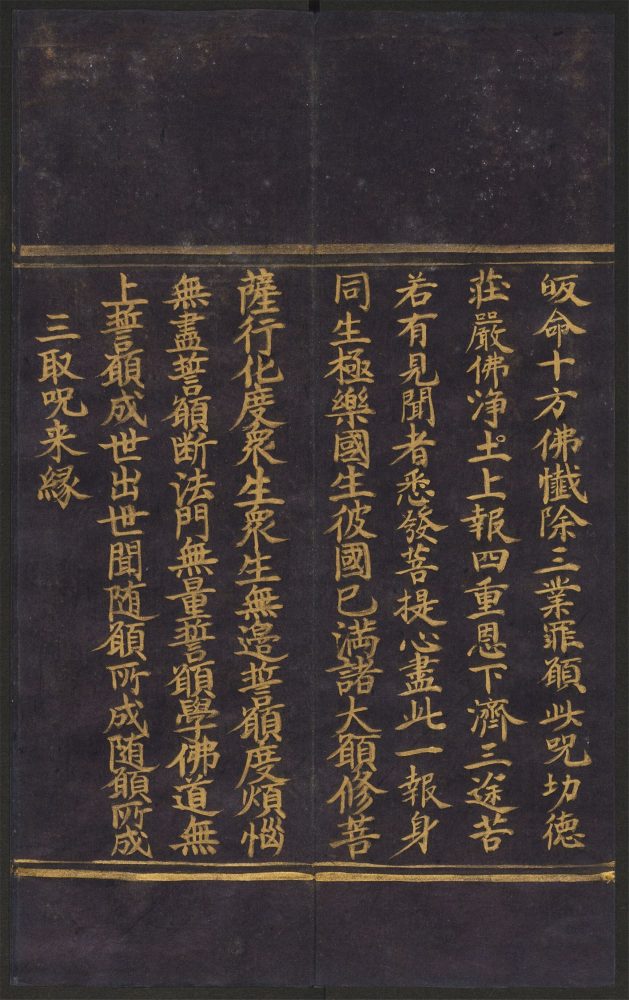 皈命十方佛懺除三業罪願此呪功德
莊嚴佛淨土上報四重恩下濟三途苦
若有見聞者悉發菩提心盡此一報身
同生極樂國生彼國已満諸大願修菩
薩行化度衆生衆生無邊誓願度煩惱
無盡誓願断法門無量誓願學佛道無
上誓願成世出世聞随願所成随願所成
三取呪来縁